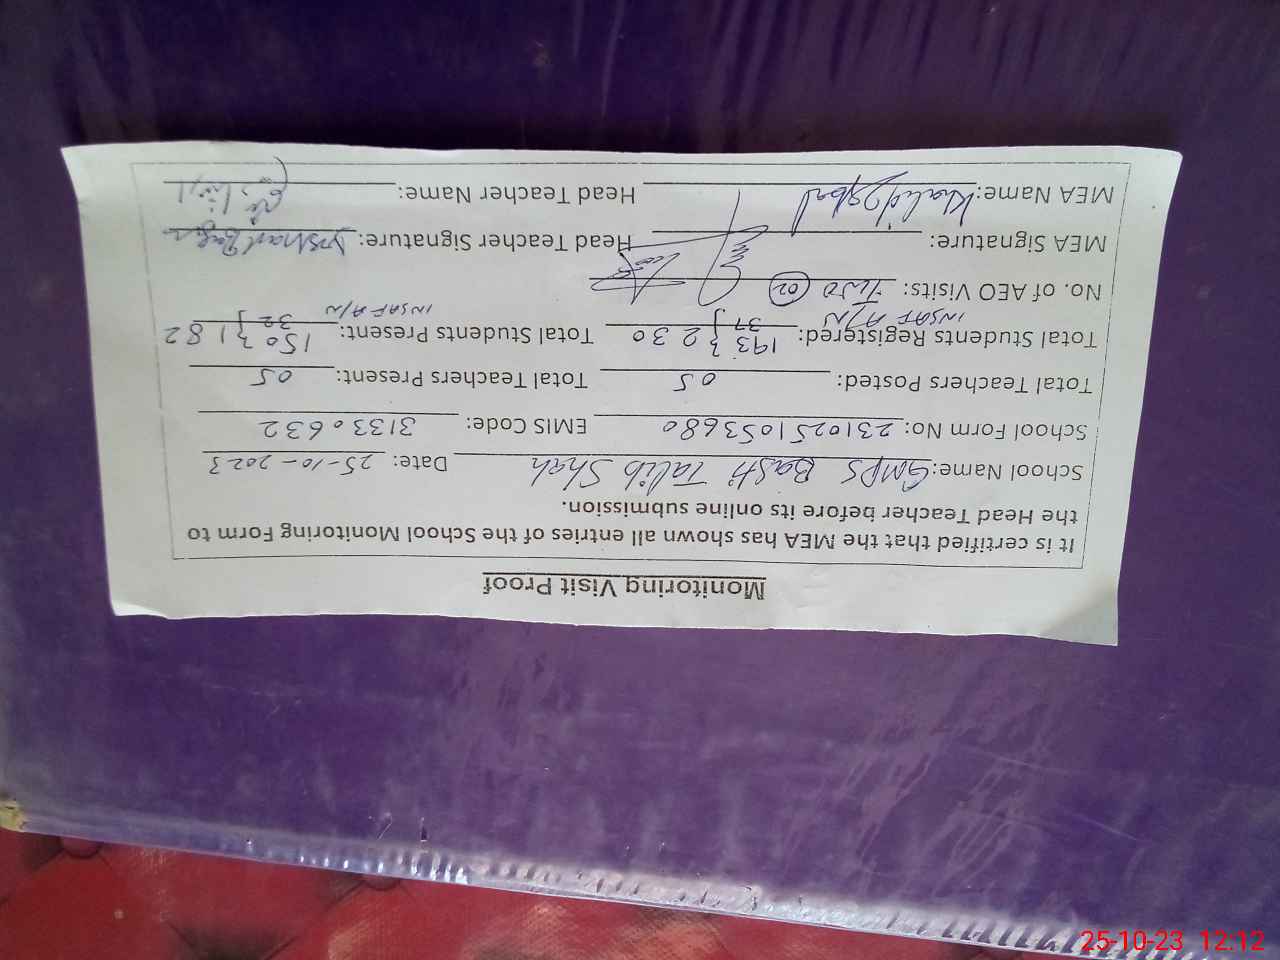 Monitoring Visit Proof
It is certified that the MEA has shown all entries of the School Monitoring Form to
the Head Teacher before its online submission.
School Name: GMPS Basti Talib Shah Date: 25-10-2023
School Form No: 2310251053680 EMIS Code: 31330632
Total Teachers Posted: 05 Total Teachers Present: 05
Total Students Registered: 193 } 230 Total Students Present: 150 } 182
INSAF A/N 37 INSAF A/N 32
No. of AEO Visits: Two 02
MEA Signature: Head Teacher Signature:
MEA Name: Khalid Iqbal Head Teacher Name:
25-10-23 12:12